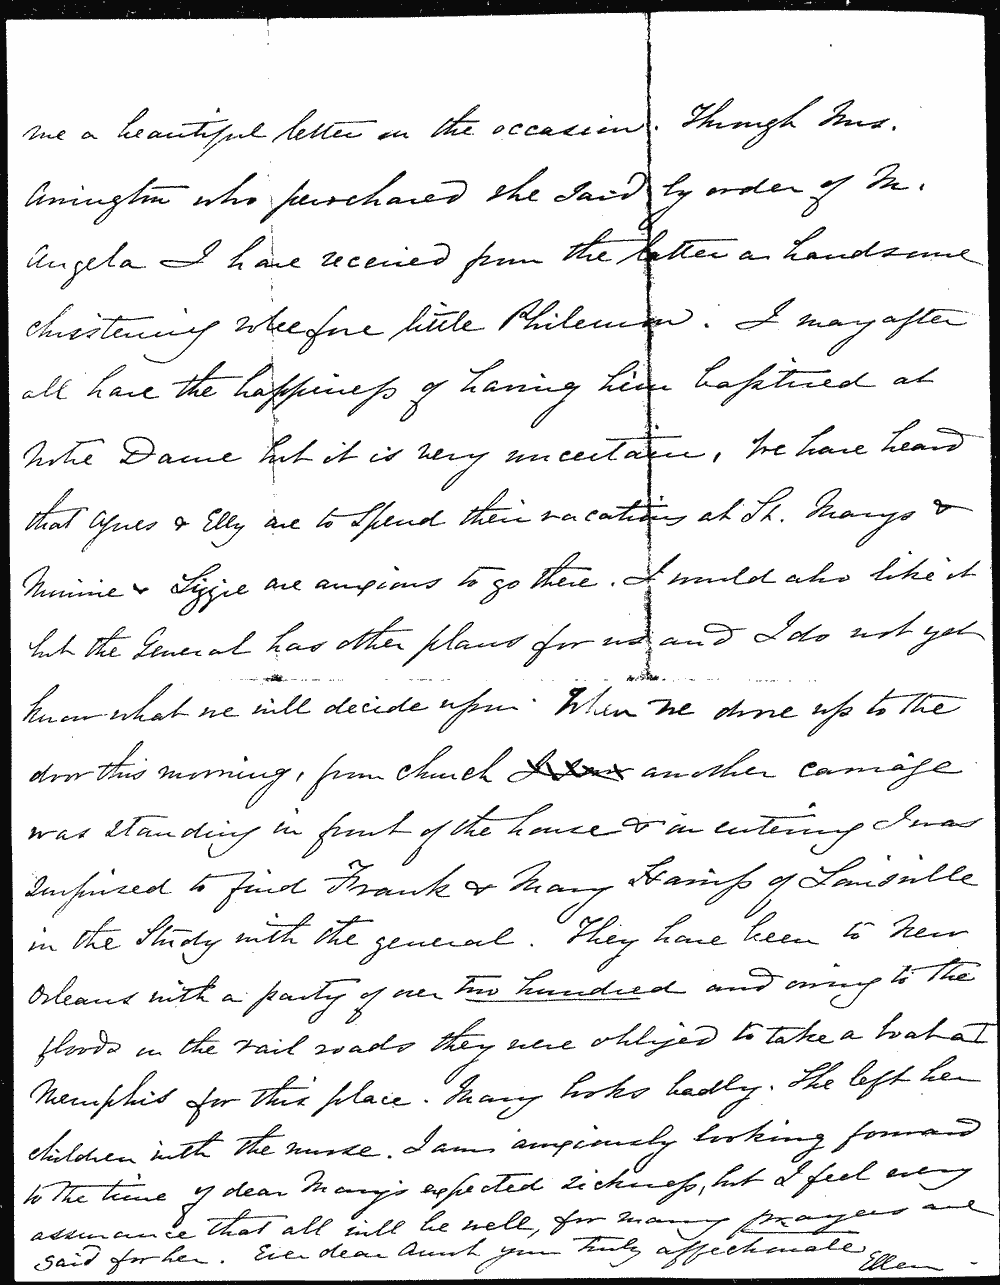 me a beautiful letter on the occasion. Through Mrs.
Arrington who purchased she said by order of M.
Angela I have received from the latter a handsome
christening robe for little Philemon. I may after
all have the happiness of having him baptized at
Notre Dame but it is very uncertain. We have heard
that Agnes & Elly are to spend their vacations at St. Marys &
Minnie & Lizzie are anxious to go there. I would also like it
but the General has other plans for us and I do not yet
know what we will decide upon. When we drove up to the
door this morning, from church another carriage
was standing in front of the house & on entering I was
surprised to find Frank & Mary of Louisville
in the Study with the general. They have been to New
Orleans with a party of over two hundred and owing to the
floods on the rail roads they were obliged to take a boat at
Memphis for this place. Mary looks badly. She left her
children with the nurse. I am anxiously looking forward
to the time of dear Mary's expected sickness, but I feel every
assurance that all will be well, for many prayers are
said for her. Ever dear Aunt your truly affectionate
Ellen